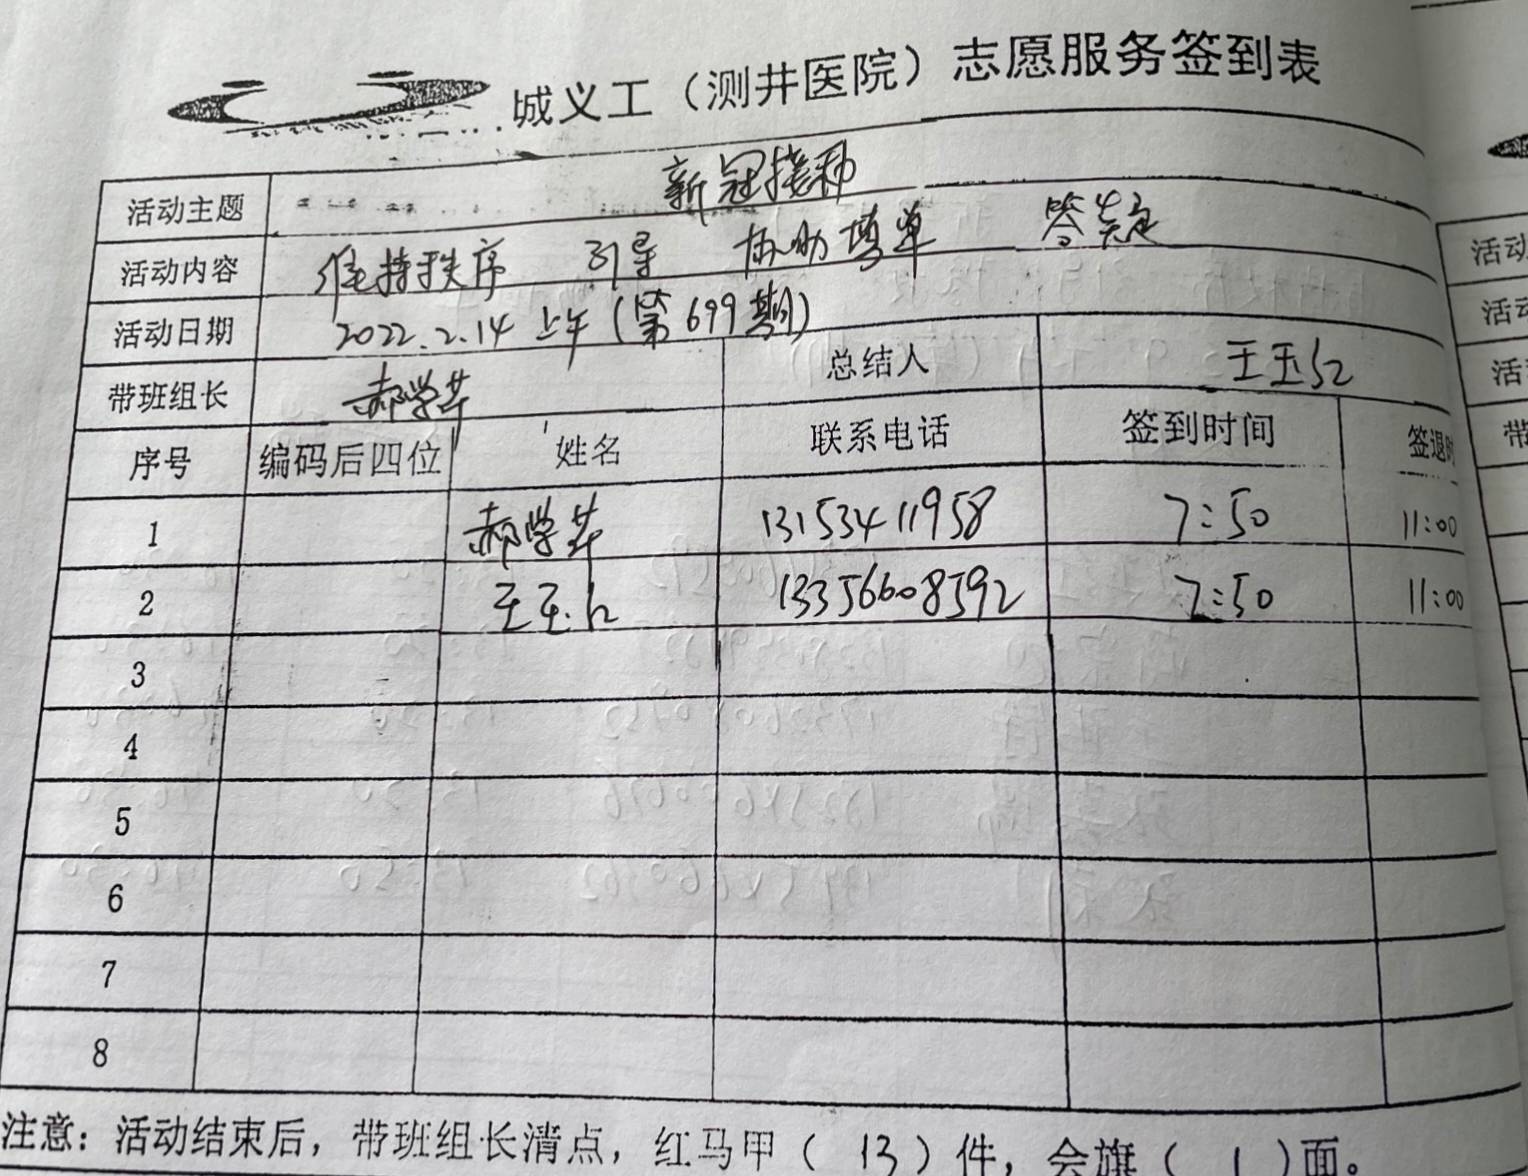 城义工（测井医院）志愿服务签到表
活动主题 新冠接种
活动内容 维持秩序 引导 协助填单 答疑
活动日期 2022.2.14 上午（第699期）
带班组长 郝学苹 总结人 王玉红
序号 编码后四位 姓名 联系电话 签到时间 签退时
1 郝学苹 13153411958 7:50 11:00
2 王玉红 13356608592 7:50 11:00
3
4
5
6
7
8
注意：活动结束后，带班组长清点，红马甲（13）件，会旗（1）面。
活动
活动
活
带